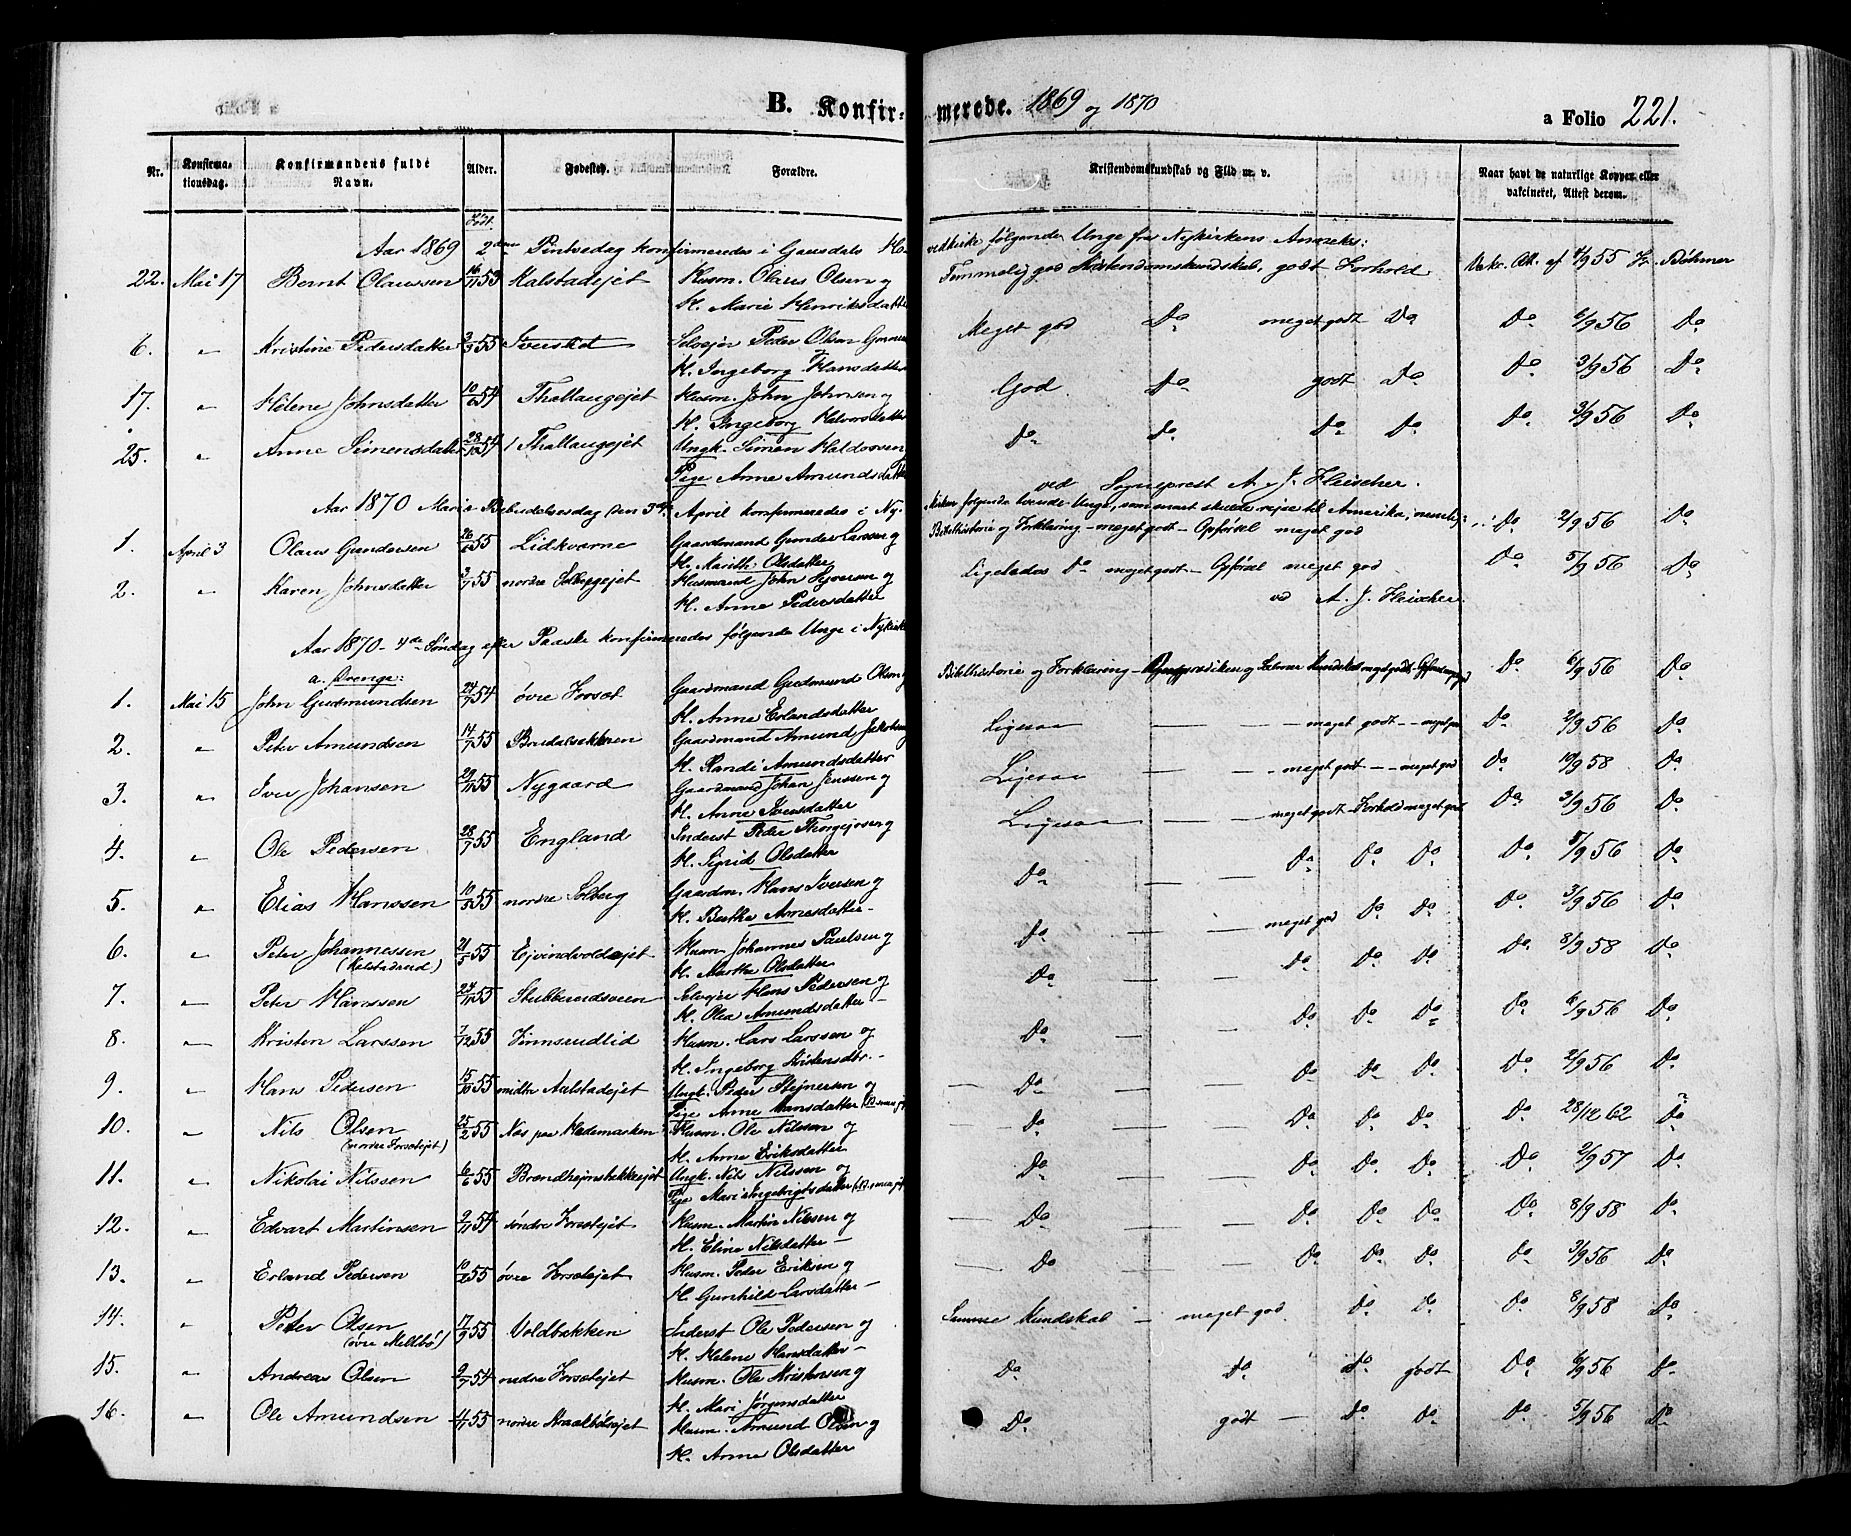 B. Konfirmerede. 1869 og 1870
a Folio 221.
Nr. Konfirmationsdag. Konfirmandens fulde Navn. Alder. Fødested. Forældre. Kristendomskundskab og Flid m. v. Naar havt de naturlige Kopper eller vakcineret, Attest derom.
Født.
Aar 1869 2den Pintsedag konfirmeredes i Gausdals Hovedkirke følgende Unge fra Nykirkens Annex:
22. Mai 17 Bernt Olaussen 53 Kalstadejet Husm. Olaus Olsen og Temmelig god Kristendomskundskab, godt Forhold. Vakc. Att. af 55 Hr. Bøhmer
K. Marie Henriksdatter
6. " Kristine Pedersdatter 55 Selvejer Peder Olsen Meget god Do meget godt Do Do 6/9 56 Do
K. Ingeborg Hansdatter
17. " Helene Johnsdatter 10/6 54 Thallaugejet Husm. John Johnsen og God Do godt Do Do 3/9 56 Do
K. Ingeborg Halvorsdatter
25. " Anne Simensdatter 28/10 54 Thallaugejet Ungk. Simen Haldorsen Do Do Do Do Do 3/9 56 Do
Pige Anne Amundsdatter
ved Sogneprest A. J. Fleischer.
Aar 1870 Mariæ Bebudelsesdag den 3die April konfirmeredes i Nykirken følgende tvende Unge, som snart skulde rejse til Amerika, nemlig:
1. April 3 Olaus Gundersen 26/6 55 Lidkværne Gaardmand Gunder Larssen og Bibelhistorie og Forklaring - meget godt - Opførsel meget god Do 2/9 56 Do
K. Marith Olsdatter
2. " Karen Johnsdatter 3/7 55 nordre Husmand John og Ligeledes Do meget godt - Opførsel meget god Do 5/9 56 Do
K. Anne Pedersdatter
ved A. J. Fleischer.
Aar 1870 - 4de Søndag efter Paaske konfirmeredes følgende Unge i Nykirken
a. Drenge:
1. Mai 15 John Gudmundsen 24/7 54 øvre Forset Gaardmand Gudmund Olsen og Bibelhistorie og Forklaring Do 6/9 56 Do
K. Anne Erlandsdatter
2. " Peter Amundsen 14/7 55 Bredalsbakken Gaardmand Amund Ligesaa — — meget godt Do 2/9 56 Do
K. Randi Amundsdatter
3. " Iver Johansen 55 Nygaard Gaardmand Johan Jenssen og Ligesaa — — meget godt — meget god Do 10/9 58 Do
K. Anne Iversdatter
4. " Ole Pedersen 28/7 55 England Inderst Peder og Ligesaa — — meget godt - Forhold meget god Do 3/9 56 Do
K. Sigrid Olsdatter
5. " Elias Hanssen 55 nordre Solberg Gaardm. Hans Iversen og Do — — Do Do Do Do 56 Do
K. Berthe Arnesdatter -
6. " Peter Johannessen 21/5 55 Ejvindvoldejet Husm. Johannes Paulsen og Do — — meget god Do Do Do 3/9 56 Do
(Kalstadrud)
K. Marthe Olsdatter
7. " Peter Hanssen 24/11 55 Stubberudsveen Selvejer Hans Pedersen og Do Do Do Do Do 8/9 58 Do
K. Olea Amundsdatter -
8. " Kristen Larssen 7/12 55 Finnsrudlid Husm. Lars Larssen og Do — — Do Do Do Do 6/9 56 Do
K. Ingeborg Kristensdtr. -
9. " Hans Pedersen 15/10 55 midtre Aalstadejet Ungk. Peder Stejnersen og Do — — Do Do Do Do 2/9 56 Do
Pige Anne Hansdatter
10. " Nils Olsen 25/2 55 Næs paa Hedemarken Husm. Ole Nilssen og Do — — Do Do Do Do 28/12 62 Do
(nordre Forsetejet)
K. Anne Eriksdatter
11. " Nikolai Nilssen 6/6 55 Ungk. Nils Nilssen og Do — — Do Do Do Do 2/9 57 Do
Pige Mari Ingebrigtsdatter
12. " Edvart Martinsen 2/11 54 søndre Forsetejet Husm. Martin Nilsen og Do — — Do Do Do Do 8/9 58 Do
K. Eline Nilsdatter -
13. " Erland Pedersen 55 øvre Forsetejet Husm. Peder Eriksen og Do — — Do Do Do Do 3/9 56 Do
K. Gunhild Larsdatter -
14. " Peter Olsen 17/9 55 Voldbakken Inderst Ole Pedersen og Samme Kundskab - meget god Do Do Do 8/9 58 Do
(øvre Mellbø)
K. Helene Hansdatter -
15. " Andreas Olsen 9/7 54 nedre Forsetejet Husm. Ole Kristensen og Do Do Do godt Do 6/9 56 Do
K. Mari Jørgensdatter
16. " Ole Amundsen 55 nordre Husm. Amund Olsen og Do godt — Do Do Do 5/9 56 Do
K. Anne Olsdatter